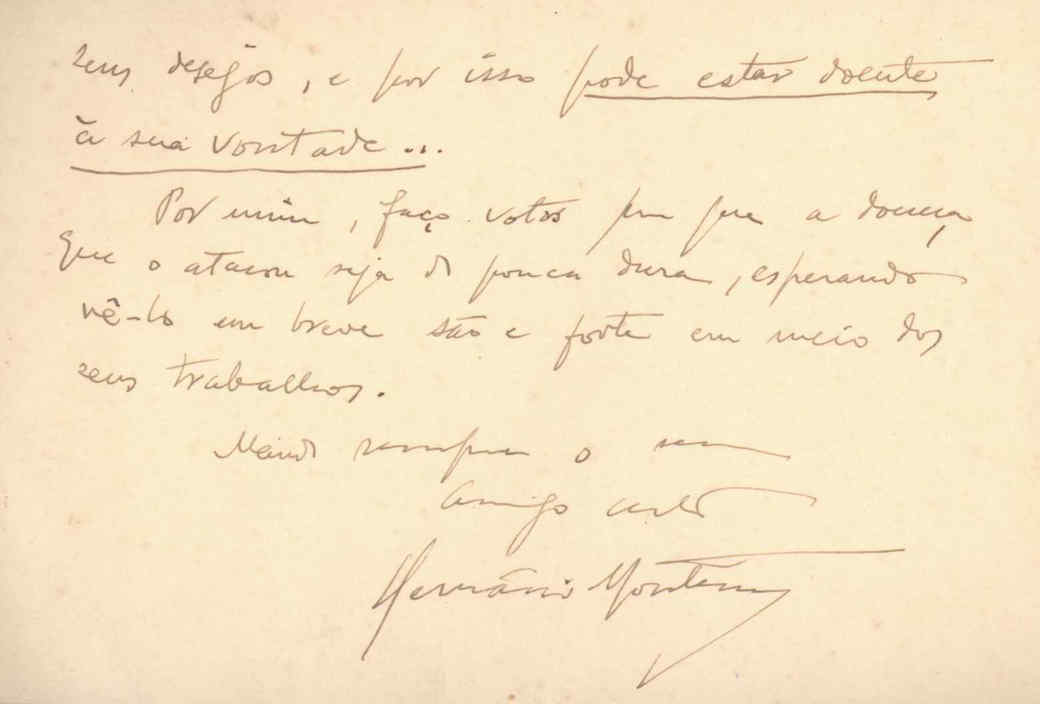 seus desejos, e por isso pode estar doente
à sua vontade...
Por mim, faço votos para que a doença
que o atacou seja de pouca dura, esperando
vê-lo em breve são e forte em meio dos
seus trabalhos.
Mande sempre o seu
amigo certo
Hernâni Monteiro